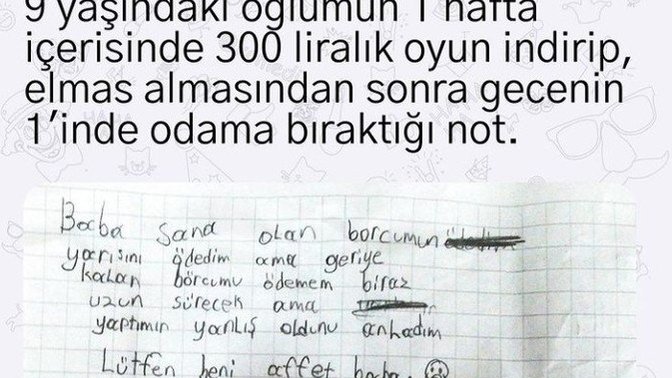 9 yaşındaki oğlumun 1 hafta
içerisinde 300 liralık oyun indirip,
elmas almasından sonra gecenin
1'inde odama bıraktığı not.
Baba sana olan borcumun
yarısını ödedim ama geriye
kalan börcumu ödemem biraz
uzun sürecek ama
yaptımın yanlış oldunu anladım
Lütfen beni affet baba.